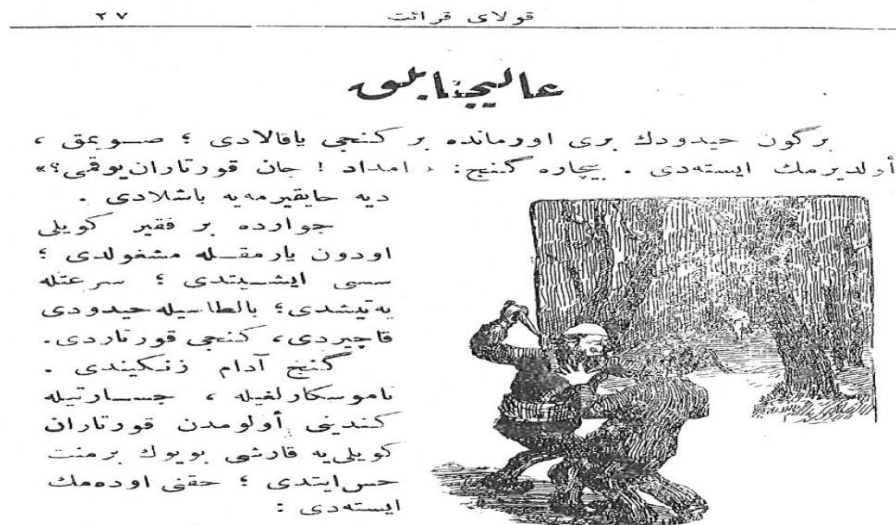 ٢٧ قولاى قرائت
عاليجنابلق
برگون حيدودك برى اورمانده بر كنجى ياقالادى ؛ صويمق ،
أولديرمك ايسته‌دى . بيچاره گنج: « امداد ! جان قورتاران يوقمى؟»
ديه حايقيرمه‌يه باشلادى .
جوارده بر فقير كويلى
اودون يارمقله مشغولدى ؛
سسى ايشيتدى ؛ سرعتله
يه‌تيشدى؛ بالطاسيله حيدودى
قاچيردى، كنجى قورتاردى.
گنج آدام زنكيندى .
ناموسكارلغيله ، جسارتيله
كندينى أولومدن قورتاران
كويلى‌يه قارشى بويوك برمنت
حس ايتدى ؛ حقنى اوده‌مك
ايسته‌دى :